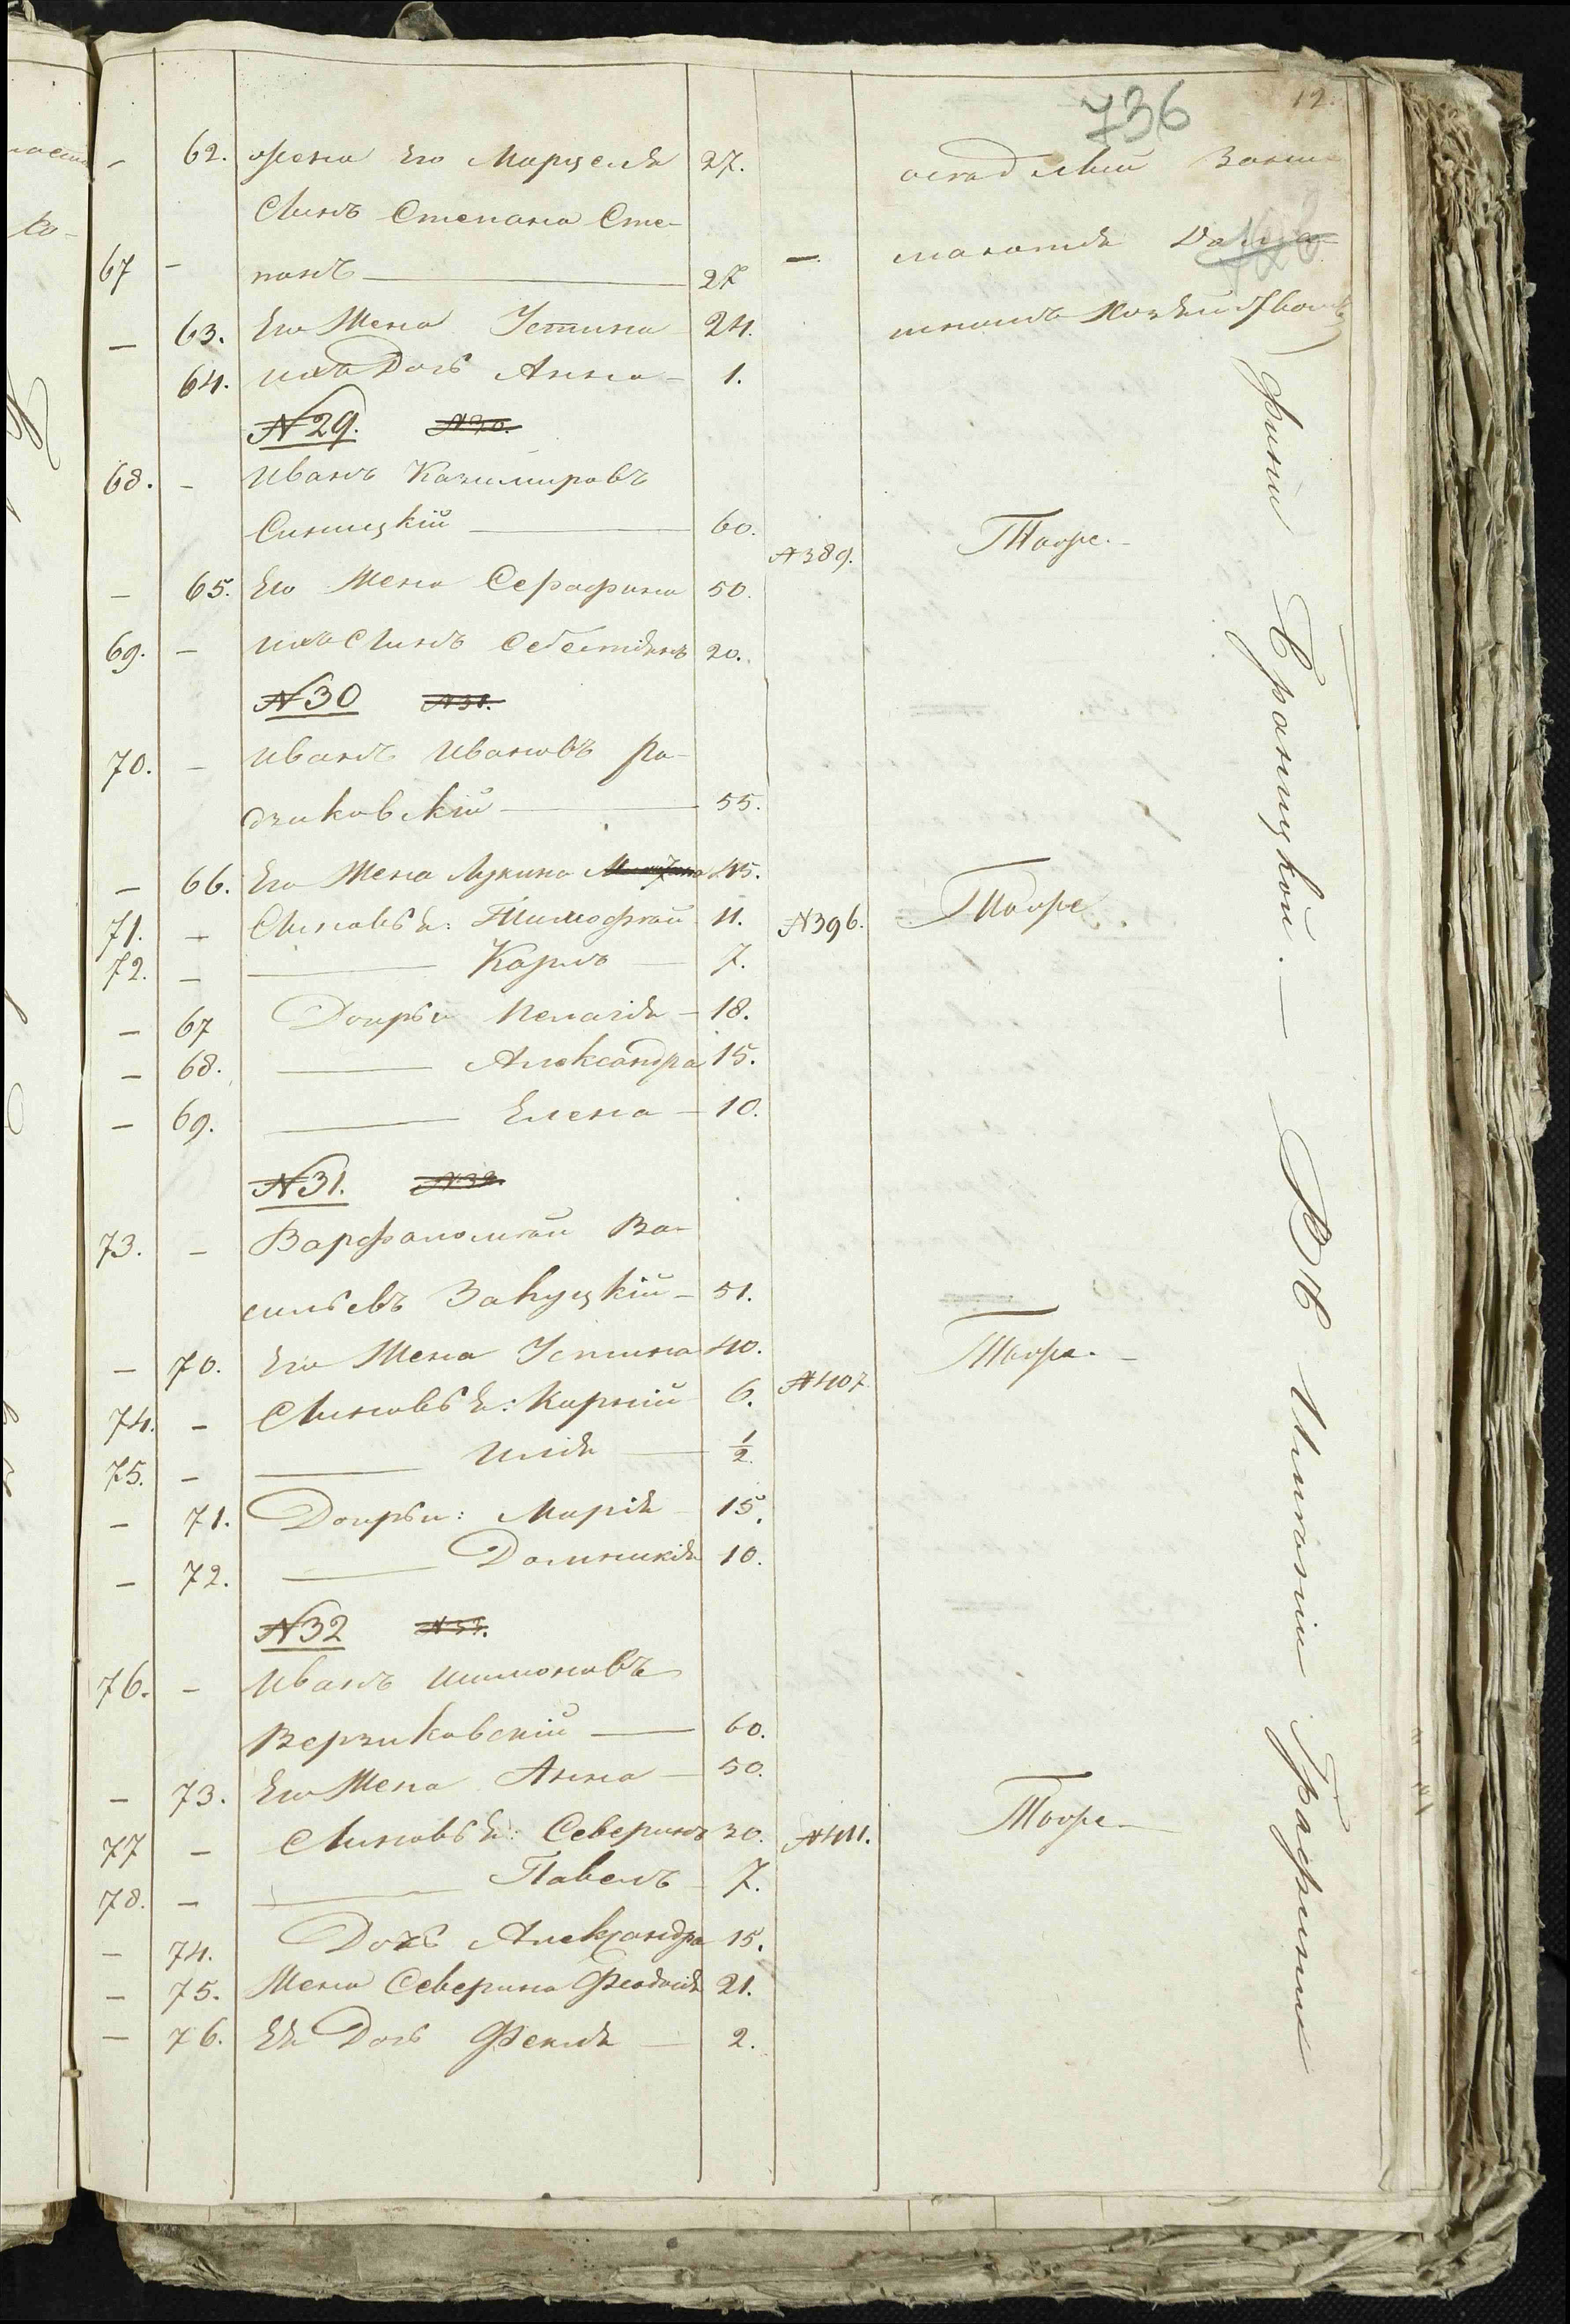 736
12.
- 62. жена Его Марцеля 27.
Сынъ Степана Сте-
67 - панъ 27 -
- 63. Его Жена Устина 24.
64. ихъ Дочь Анна - 1.
оседлый
Домо-
N 29. N 30.
68. - Иванъ Казимировъ
Синицкій 60. N 389. Тоже.-
- 65. Его Жена Серафина 50.
69. - ихъ Сынъ Себестіянъ 20.
N 30 N 31.
70. - Иванъ Ивановъ Ра-
дзиковскій 55.
- 66. Его Жена Лукина 45.
71. - Сыновья: Тимофтей 11. N 396. Тоже
72. - Карлъ 7.
- 67 Дочери Пелагія - 18.
- 68. Александра 15.
- 69. Елена - 10.
N 31. N 32.
73. - Варфоломтей Ва-
сильевъ Закуцкій - 51.
- 70. Его Жена Устина 40. Тоже.-
74. - Сыновья: Карній 6. N 407.
75. - Илія 1/2
- 71. Дочери: Марія 15.
- 72. Домникія 10.
N 32 N 33.
76. - Иванъ Шимоновъ
Верзиковскій 60.
- 73. Его Жена Анна - 50.
77 - Сыновья: Северинъ 30. N 411. Тоже-
78. - Павелъ 7.
- 74. Дочь Александра 15.
- 75. Жена Северина Феодосія 21.
- 76. Ея Дочь Фекля 2.
фини Браницкой. - Въ Имѣніи Графини